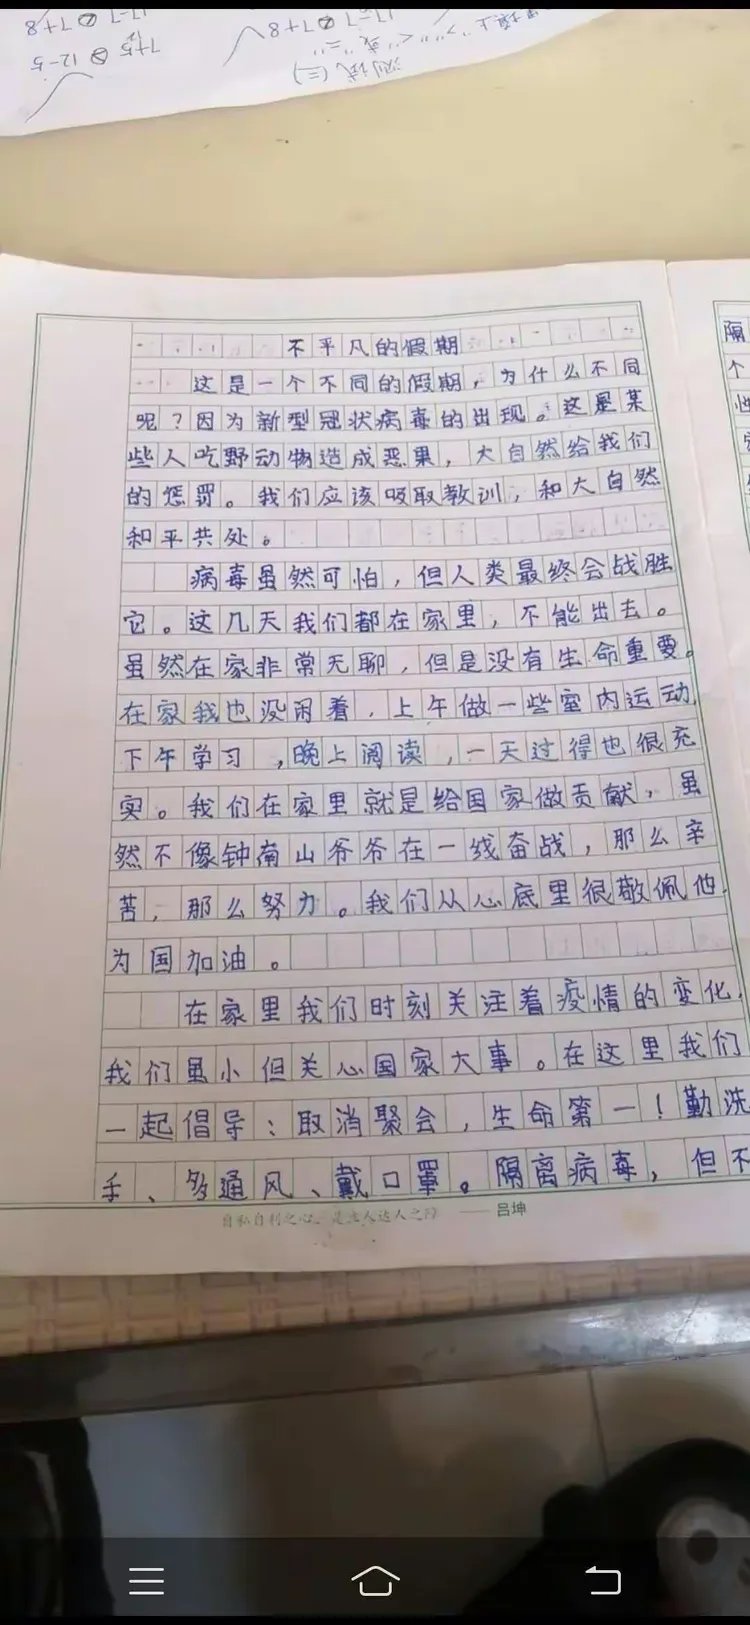 7+5 12-5
17-7 7+8
17-7 7+8
">""<"或"="
测试(三)
不平凡的假期
这是一个不同的假期，为什么不同
呢？因为新型冠状病毒的出现。这是某
些人吃野动物造成恶果，大自然给我们
的惩罚。我们应该吸取教训，和大自然
和平共处。
病毒虽然可怕，但人类最终会战胜
它。这几天我们都在家里，不能出去。
虽然在家非常无聊，但是没有生命重要。
在家我也没闲着，上午做一些室内运动，
下午学习，晚上阅读，一天过得也很充
实。我们在家里就是给国家做贡献，虽
然不像钟南山爷爷在一线奋战，那么辛
苦，那么努力。我们从心底里很敬佩他，
为国加油。
在家里我们时刻关注着疫情的变化，
我们虽小但关心国家大事。在这里我们
一起倡导：取消聚会，生命第一！勤洗
手、多通风、戴口罩。隔离病毒，但不
自私自利之心，是立人达人之障 ——吕坤
隔
个